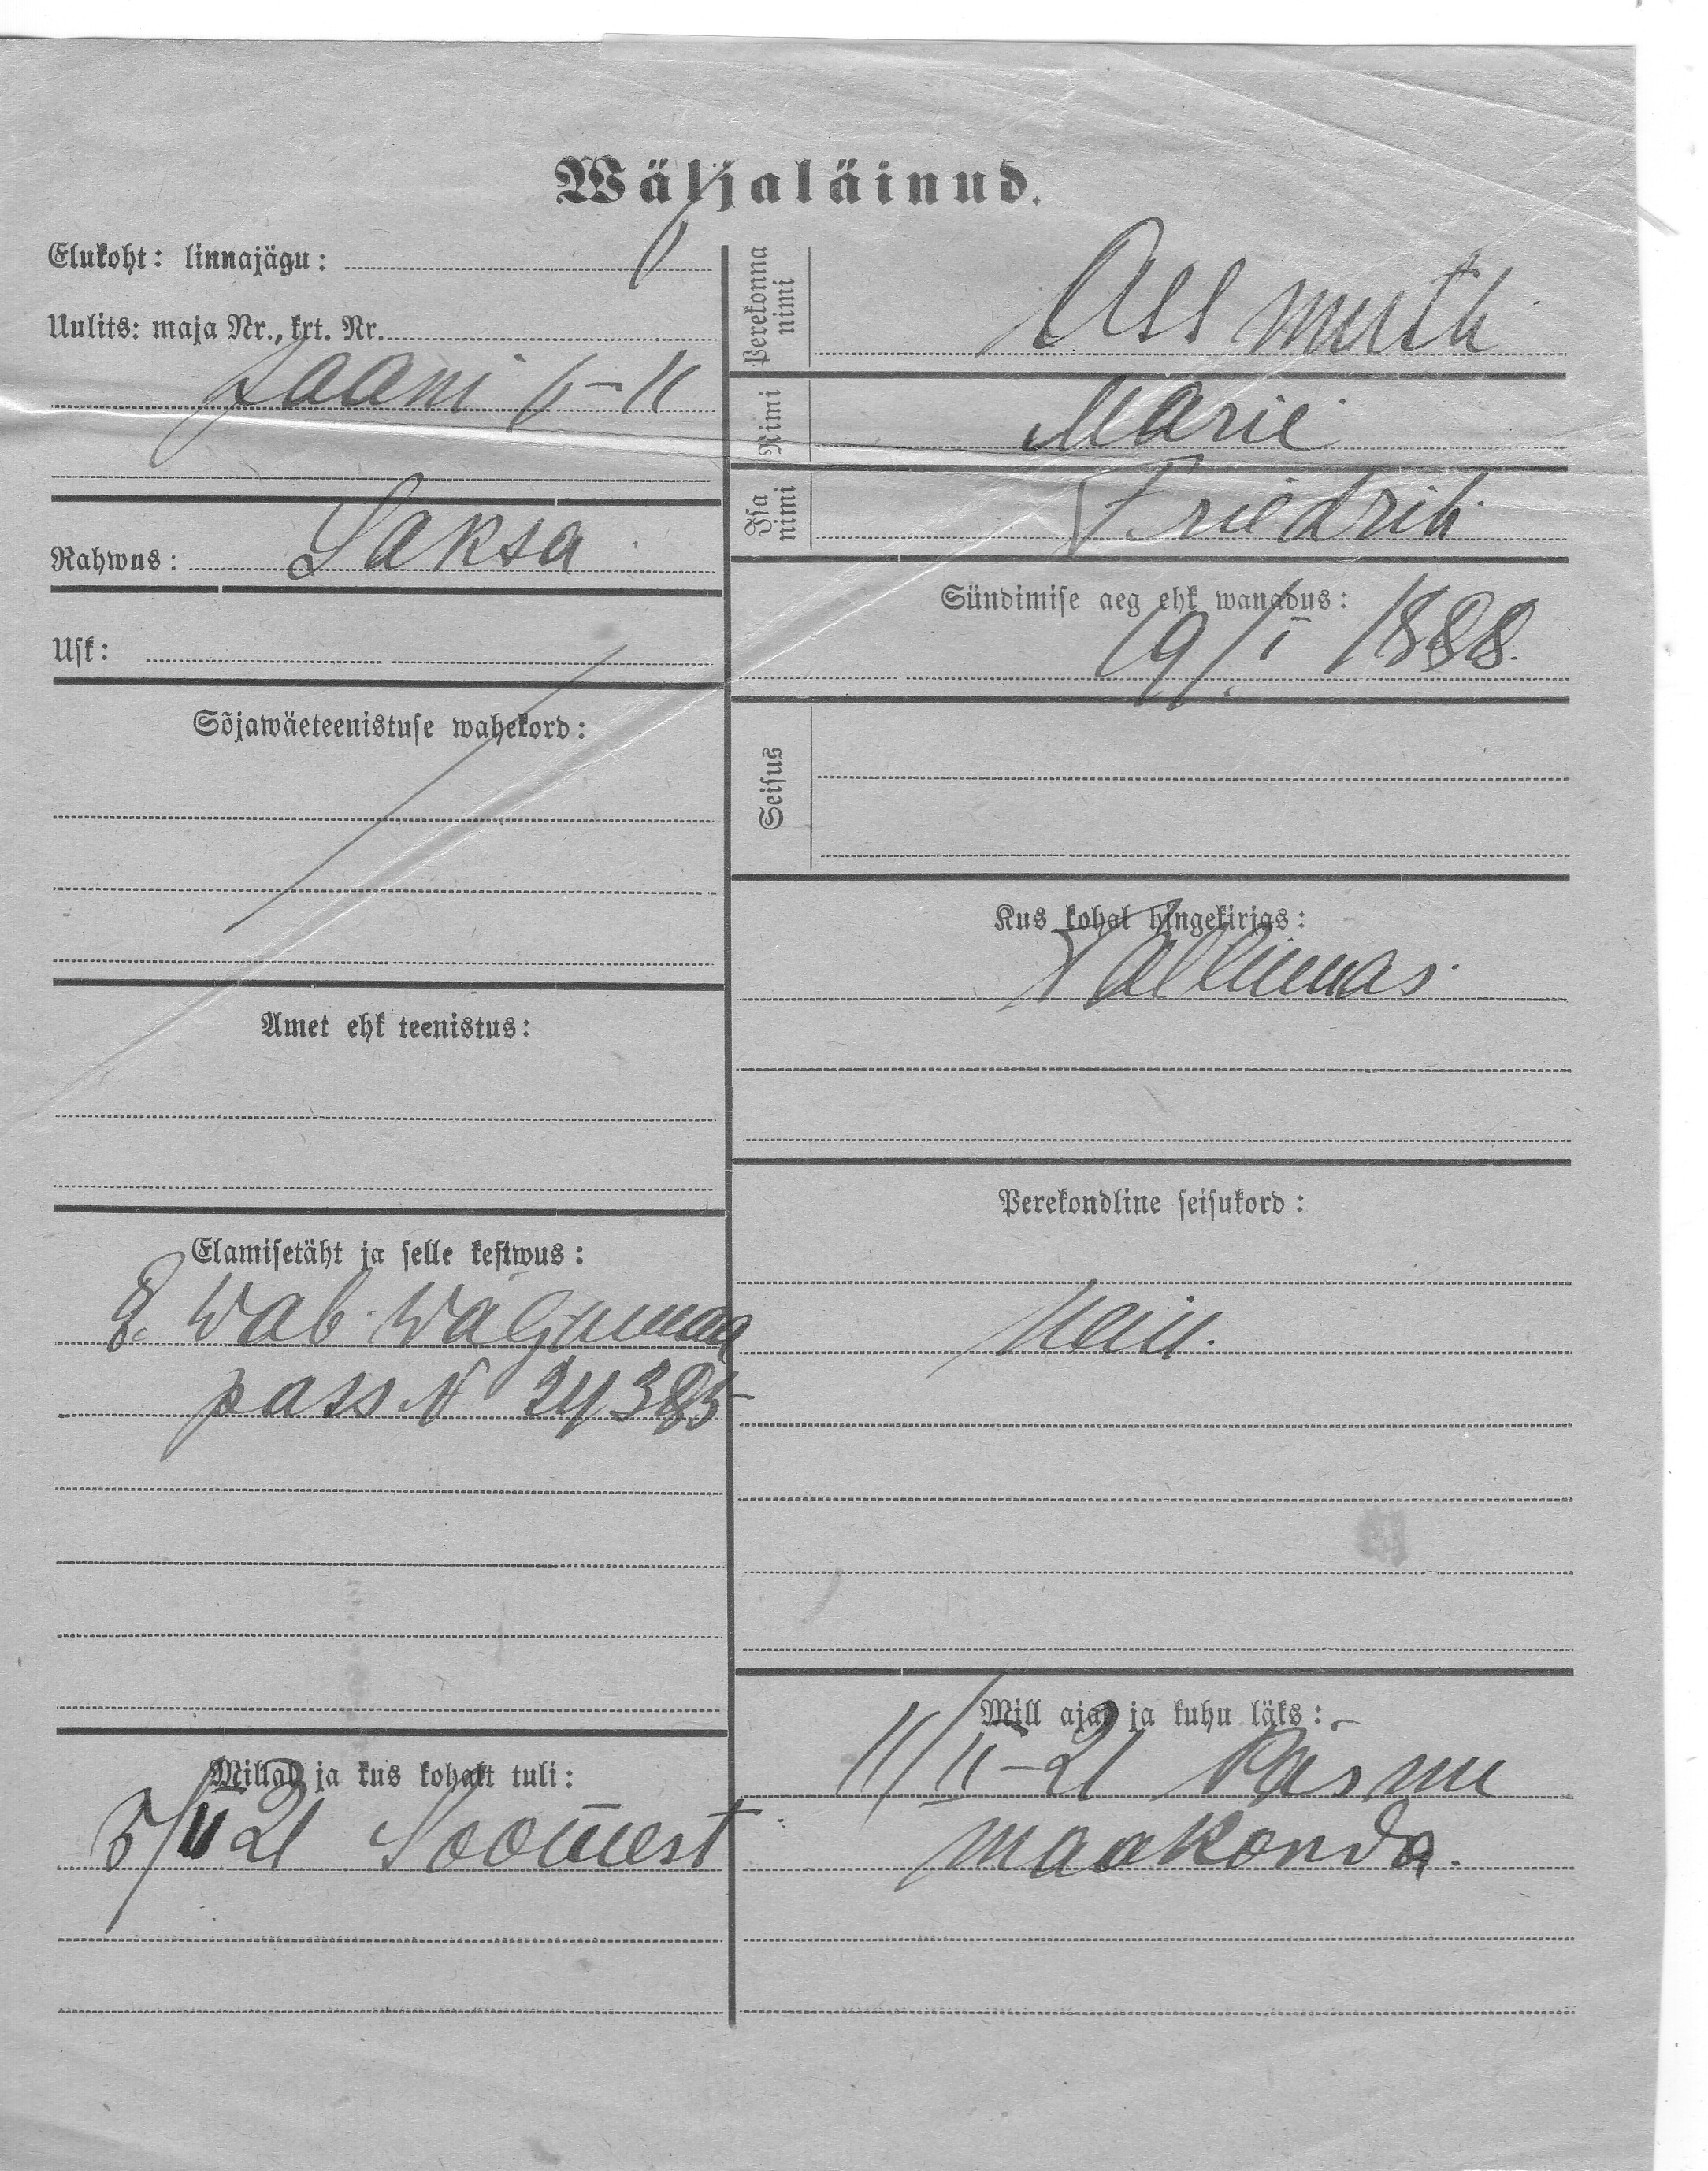 Wäljaläinud.
Elukoht: linnajägu:
Uulits: maja Nr., krt. Nr.
Jaani 6-11
Rahwus: Saksa
Usk:
Sõjawäeteenistuse wahekord:
Amet ehk teenistus:
Elamisetäht ja selle kestwus:
E. Wab. Waljamaa
pass N 24385
Millal ja kus kohalt tuli:
5/II 21 Soomest
Perekonna nimi
Assmuth
Nimi Marie
Isa nimi Friedrih
Sündimise aeg ehk wanadus:
19/I 1888.
Seisus
Kus kohal hingekirjas:
Tallinnas.
Perekondline seisukord:
Mill ajal ja kuhu läks:
11/II-21 Pärnu
maakonda.